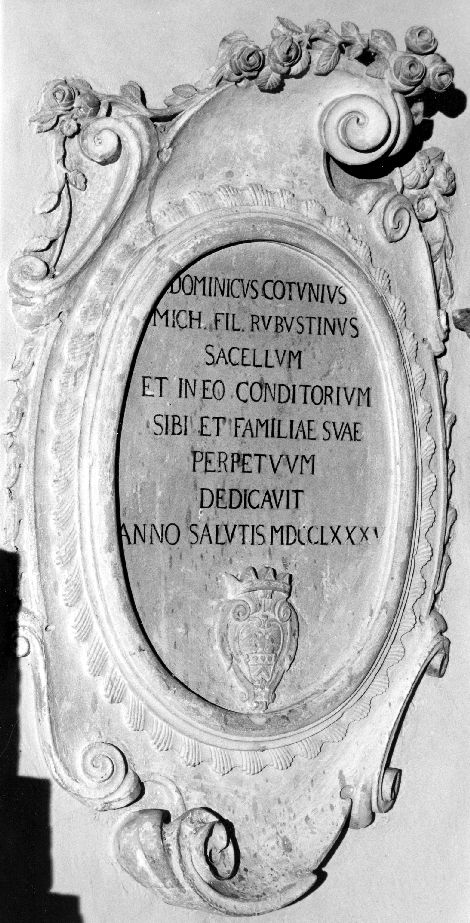 DOMINICUS COTUNNIUS
MICH. FIL. RUBUSTINUS
SACELLUM
ET IN EO CONDITORIUM
SIBI ET FAMILIAE SUAE
PERPETUUM
DEDICAVIT
ANNO SALUTIS